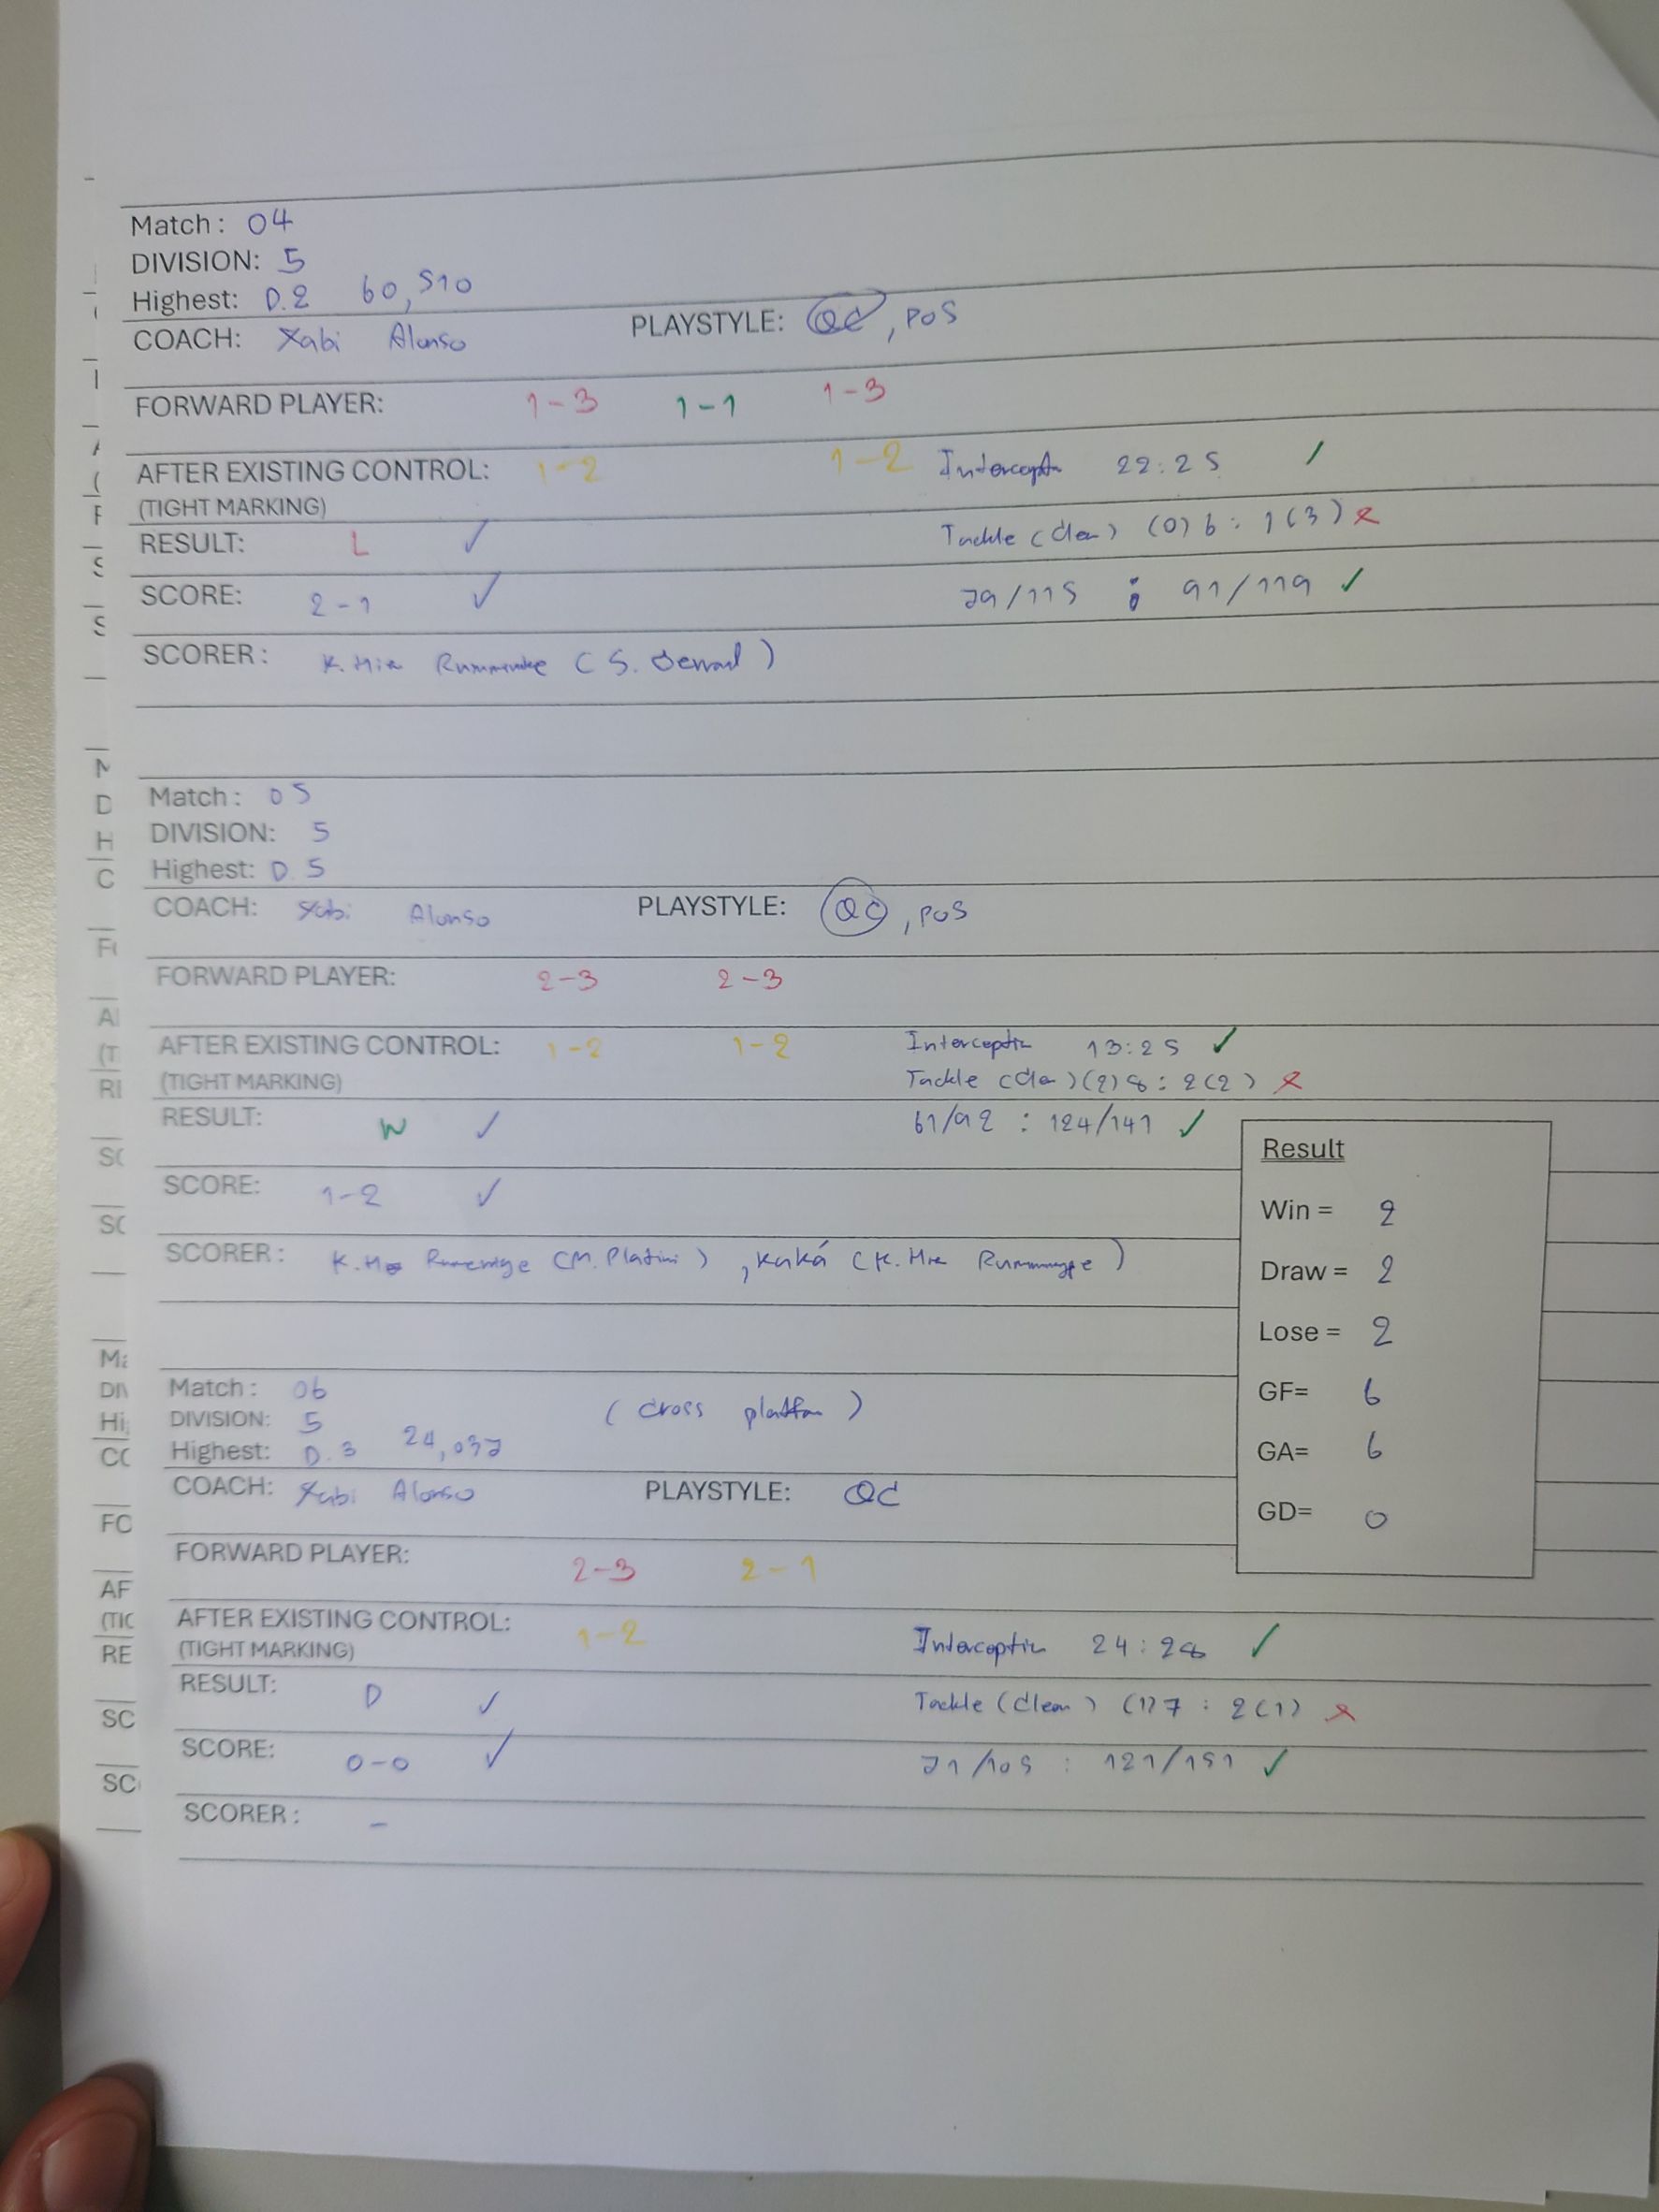 Match : 04
DIVISION: 5
Highest: D.2 60,510
COACH: Xabi Alonso PLAYSTYLE: QC, POS
FORWARD PLAYER: 1-3 1-1 1-3
AFTER EXISTING CONTROL: 1-2 1-2 Interceptn 22:25 ✓
(TIGHT MARKING)
RESULT: L ✓ Tackle (clean) (0) 6 : 1 (3) ✗
SCORE: 2-1 ✓ 79/115 : 91/119 ✓
SCORER : K. Hie Rummenige (S. Gerrard)
Match : 05
DIVISION: 5
Highest: D 5
COACH: Xabi Alonso PLAYSTYLE: QC, POS
FORWARD PLAYER: 2-3 2-3
AFTER EXISTING CONTROL: 1-2 1-2 Interceptin 13:25 ✓
(TIGHT MARKING) Tackle (clean) (2) 8 : 2 (2) ✗
RESULT: W ✓ 61/92 : 124/141 ✓
SCORE: 1-2 ✓
SCORER : K. He Rumenige (M. Platini), Kaká (K. Hie Rummenige)
Result
Win = 2
Draw = 2
Lose = 2
GF= 6
GA= 6
GD= 0
Match : 06 (cross platfom)
DIVISION: 5
Highest: D.3 24,037
COACH: Xabi Alonso PLAYSTYLE: QC
FORWARD PLAYER: 2-3 2-1
AFTER EXISTING CONTROL: 1-2 Interceptin 24:28 ✓
(TIGHT MARKING)
RESULT: D ✓ Tackle (clean) (1) 7 : 2 (1) ✗
SCORE: 0-0 ✓ 71/105 : 121/151 ✓
SCORER : -